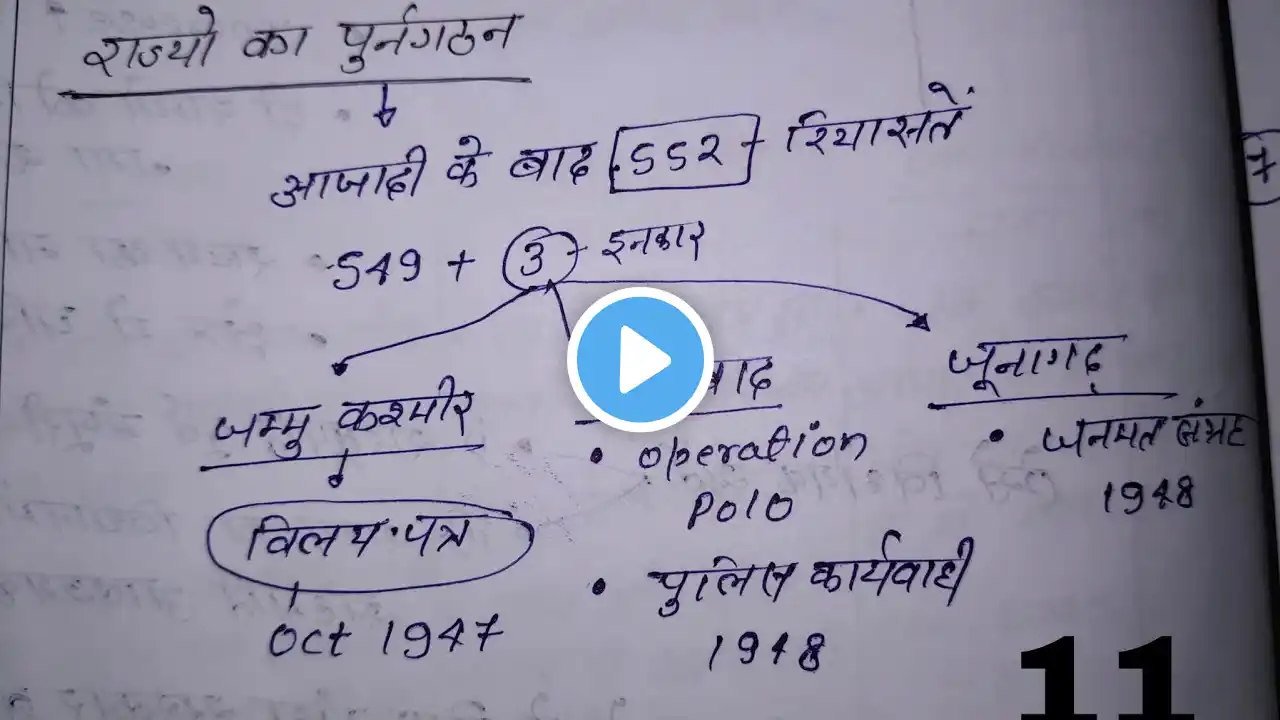 राज्यो का पुर्नगठन
आजादी के बाद 552 - रियासतें
549 + 3 - इनकार
जम्मु कश्मीर
बाद
जूनागढ़
विलय-पत्र
Oct 1947
• operation
Polo
• पुलिस कार्यवाही
1948
• जनमत संग्रह
1948
7
11